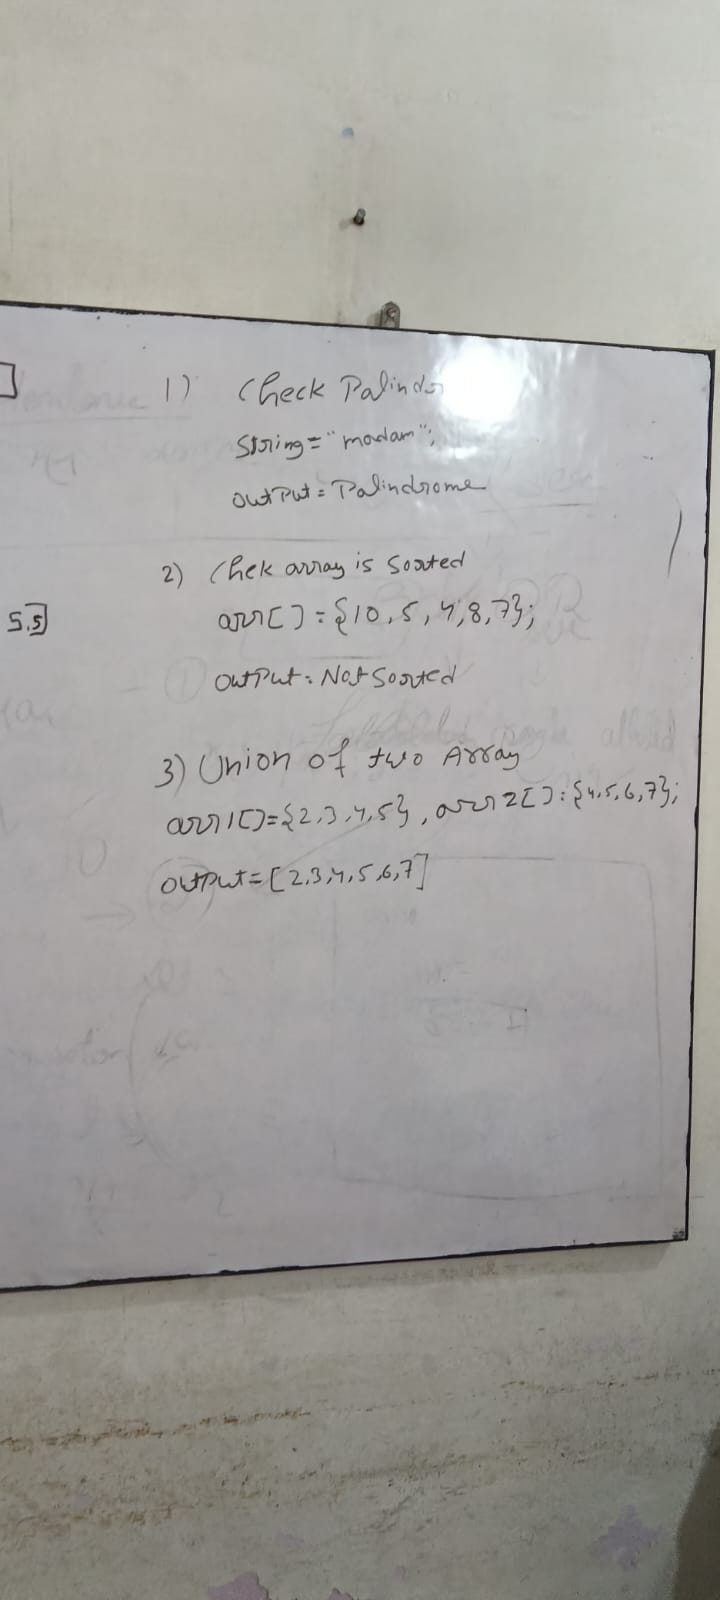 1) Check Palindro
String = "madam";
output = Palindrome
2) Chek array is Sorted
5.5]
arr[] = {10, 5, 4, 8, 7};
output = Not Sorted
3) Union of two Array
arr1[] = {2, 3, 4, 5}, arr2[] = {4, 5, 6, 7};
output = [2, 3, 4, 5, 6, 7]